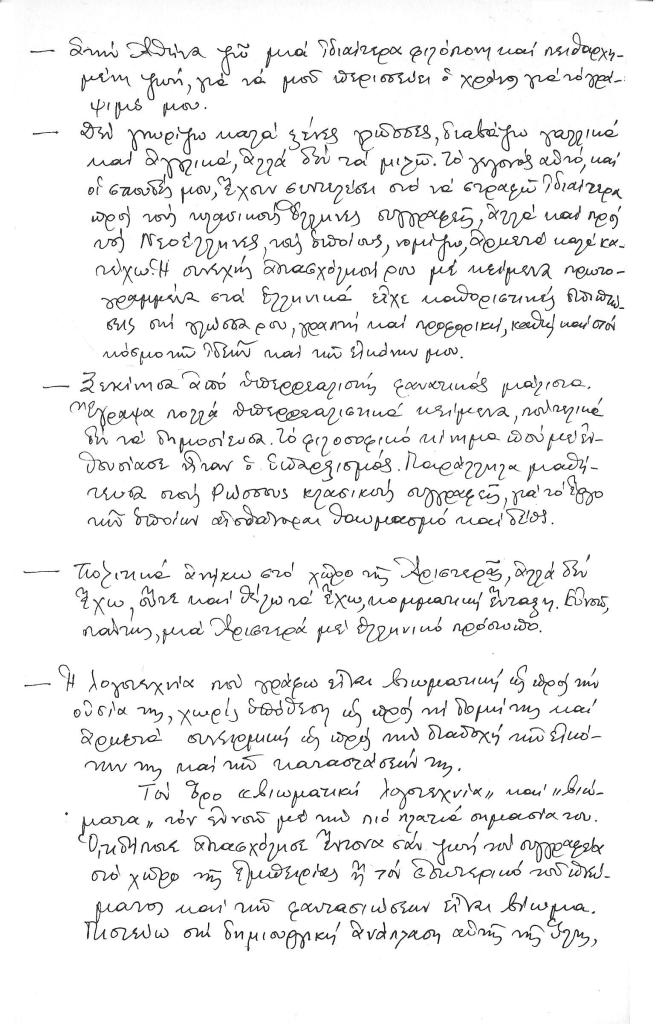 — Στήν Ἀθήνα ζῶ μιά ἰδιαίτερα φιλόπονη καί πειθαρχη-
μένη ζωή, γιά νά μοῦ περισσεύει ὁ χρόνος γιά τό γρά-
ψιμό μου.
— Δέν γνωρίζω καλά ξένες γλῶσσες, διαβάζω γαλλικά
καί ἀγγλικά, ἀλλά δέν τά μιλῶ. Τό γεγονός αὐτό, καί
οἱ σπουδές μου, ἔχουν συντελέσει στό νά στραφῶ ἰδιαίτερα
πρός τούς κλασικούς Ἕλληνες συγγραφεῖς, ἀλλά καί πρός
τούς Νεοέλληνες, τούς ὁποίους, νομίζω, ἀρκετά καλά κα-
τέχω. Ἡ συνεχής ἀπασχόλησή μου μέ κείμενα πρωτο-
γραμμένα στά ἑλληνικά εἶχε καθοριστικές ἐπιπτώ-
σεις στή γλώσσα μου, γραπτή καί προφορική, καθώς καί στόν
κόσμο τῶν ἰδεῶν καί τῶν εἰκόνων μου.
— Ξεκίνησα ἀπό ὑπερρεαλιστής φανατικός μάλιστα.
Ἔγραψα πολλά ὑπερρεαλιστικά κείμενα, πού τελικά
δέν τά δημοσίευσα. Τό φιλοσοφικό κίνημα πού μέ ἐν-
θουσίασε ἦταν ὁ ὑπαρξισμός. Παράλληλα μαθή-
τευσα στούς Ρώσσους κλασικούς συγγραφεῖς, γιά τό ἔργο
τῶν ὁποίων αἰσθάνομαι θαυμασμό καί δέος.
— Πολιτικά ἀνήκω στό χῶρο τῆς Ἀριστερᾶς, ἀλλά δέν
ἔχω, οὔτε καί θέλω νά ἔχω, κομματική ἔνταξη. Εὐνοῶ,
πάντως, μιά Ἀριστερά μέ ἑλληνικό πρόσωπο.
— Ἡ λογοτεχνία πού γράφω εἶναι βιωματική ὡς πρός τήν
οὐσία της, χωρίς ὑπόθεση ὡς πρός τή δομή της καί
ἀρκετά συνειρμική ὡς πρός τήν διαδοχή τῶν εἰκό-
νων της καί τῶν καταστάσεών της.
Τόν ὅρο «βιωματική λογοτεχνία» καί «βιώ-
ματα» τόν ἐννοῶ μέ τήν πιό πλατιά σημασία του.
Ὅ,τιδήποτε ἀπασχόλησε ἔντονα σάν ζωή τοῦ συγγραφέα
στό χῶρο τῆς ἐμπειρίας ἤ τόν ἐσωτερικό τοῦ πνεύ-
ματος καί τῶν φαντασιώσεων εἶναι βίωμα.
Πιστεύω στή δημιουργική ἀνάπλαση αὐτῆς τῆς ὕλης,